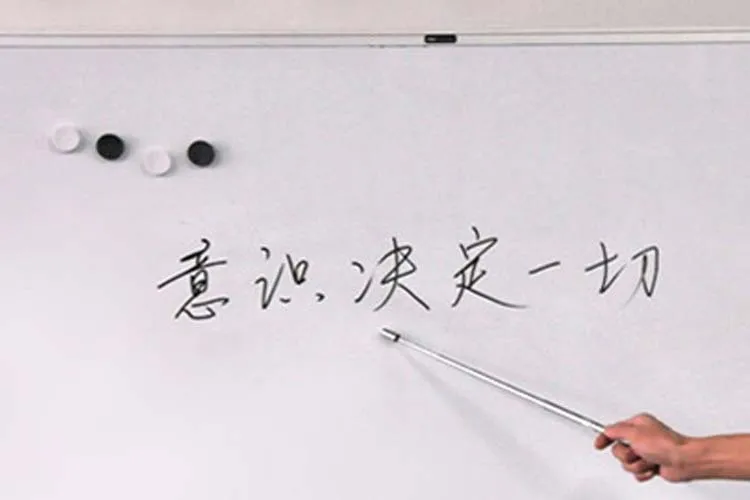 意识决定一切